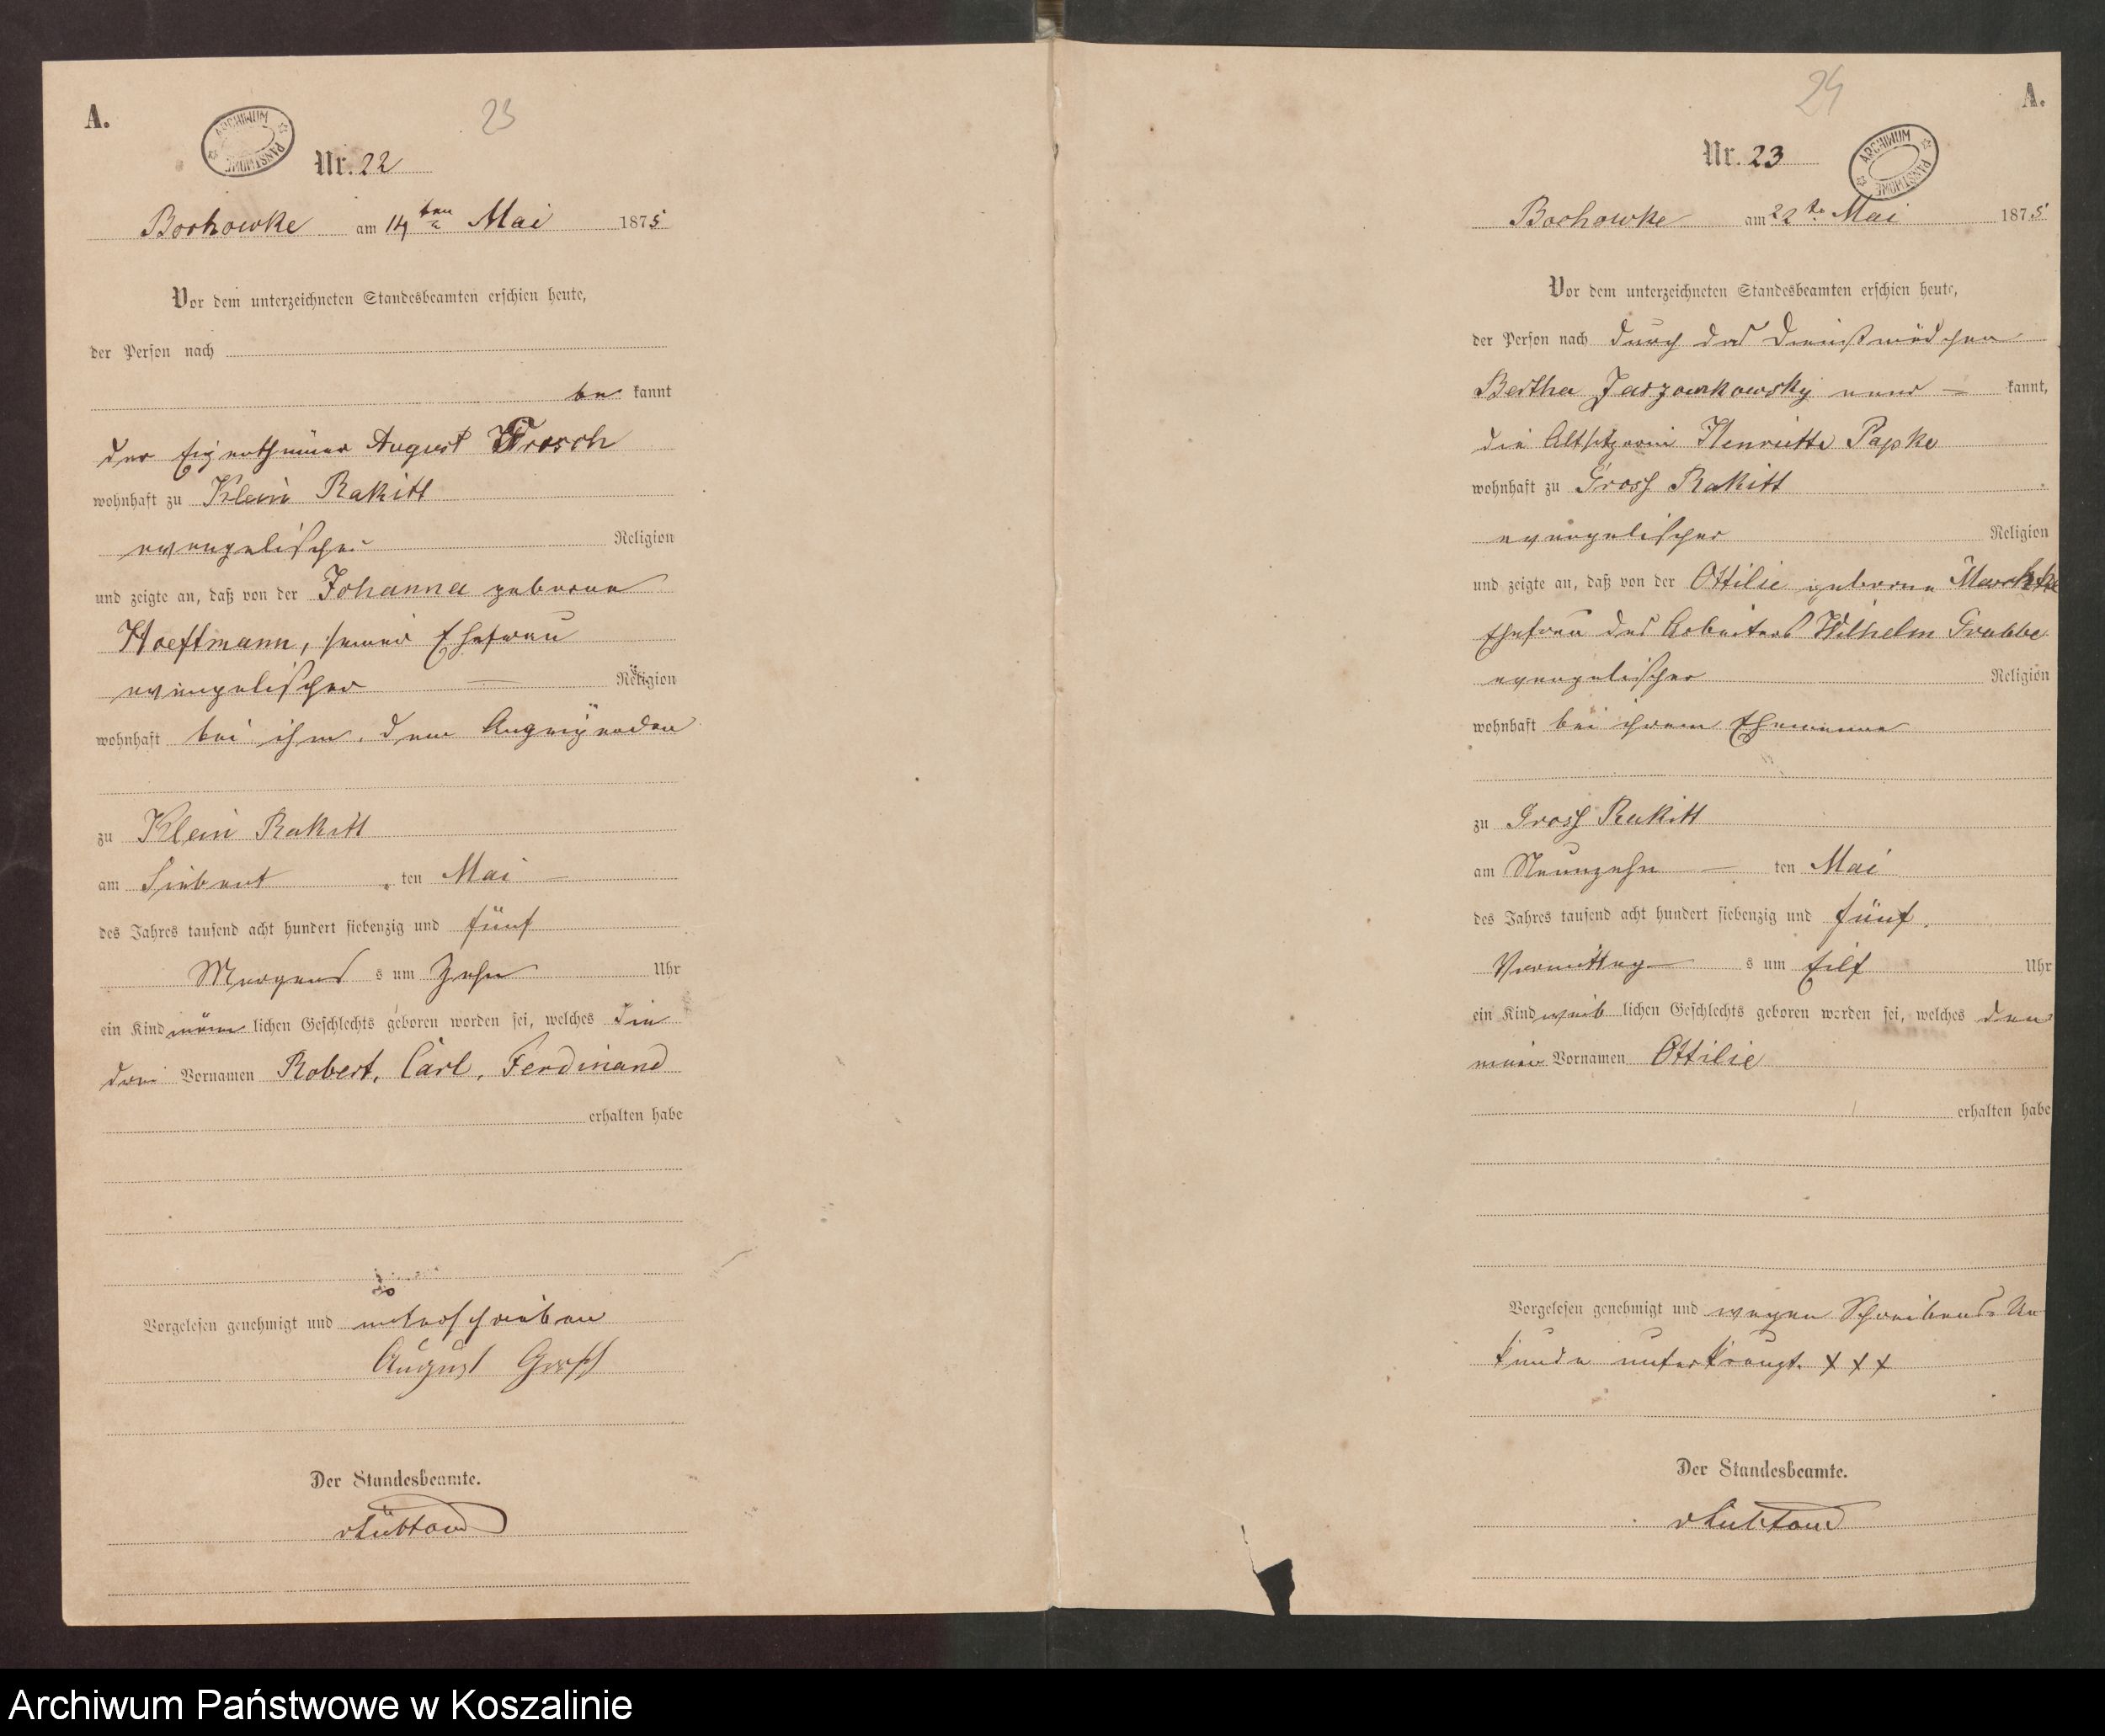 A.
23
ARCHIWUM PAŃSTWOWE
Nr. 22
Borkowke am 14ten Mai 1875
Vor dem unterzeichneten Standesbeamten erschien heute,
der Person nach
be kannt
der Eigenthümer August
wohnhaft zu Klein Rakitt
evangelischer Religion
und zeigte an, daß von der Johanna geborne
Hoeftmann, seiner Ehefrau
evangelischer Religion
wohnhaft bei ihm, dem Anzeigenden
zu Klein Rakitt
am Siebent ten Mai
des Jahres tausend acht hundert siebenzig und fünf
Morgens um Zehn Uhr
ein Kind männlichen Geschlechts geboren worden sei, welches die
drei Vornamen Robert, Carl, Ferdinand
erhalten habe
Vorgelesen genehmigt und unterschrieben
August
Der Standesbeamte.
24
A.
Nr. 23
ARCHIWUM PAŃSTWOWE
Borkowke am 22te Mai 1875
Vor dem unterzeichneten Standesbeamten erschien heute,
der Person nach durch das Dienstmädchen
Bertha kannt,
die Altsitzerin Henriette Papke
wohnhaft zu Gross Rakitt
evangelischer Religion
und zeigte an, daß von der Ottilie geborne
Ehefrau des Arbeiters Wilhelm Grubbe
evangelischer Religion
wohnhaft bei ihrem Ehemanne
zu Gross Rakitt
am Neunzehn ten Mai
des Jahres tausend acht hundert siebenzig und fünf.
Vormittags um Eilf Uhr
ein Kind weiblichen Geschlechts geboren worden sei, welches den
einen Vornamen Ottilie
erhalten habe
Vorgelesen genehmigt und wegen Schreibens-Un
kunde unterkreuzt. x x x
Der Standesbeamte.
Archiwum Państwowe w Koszalinie